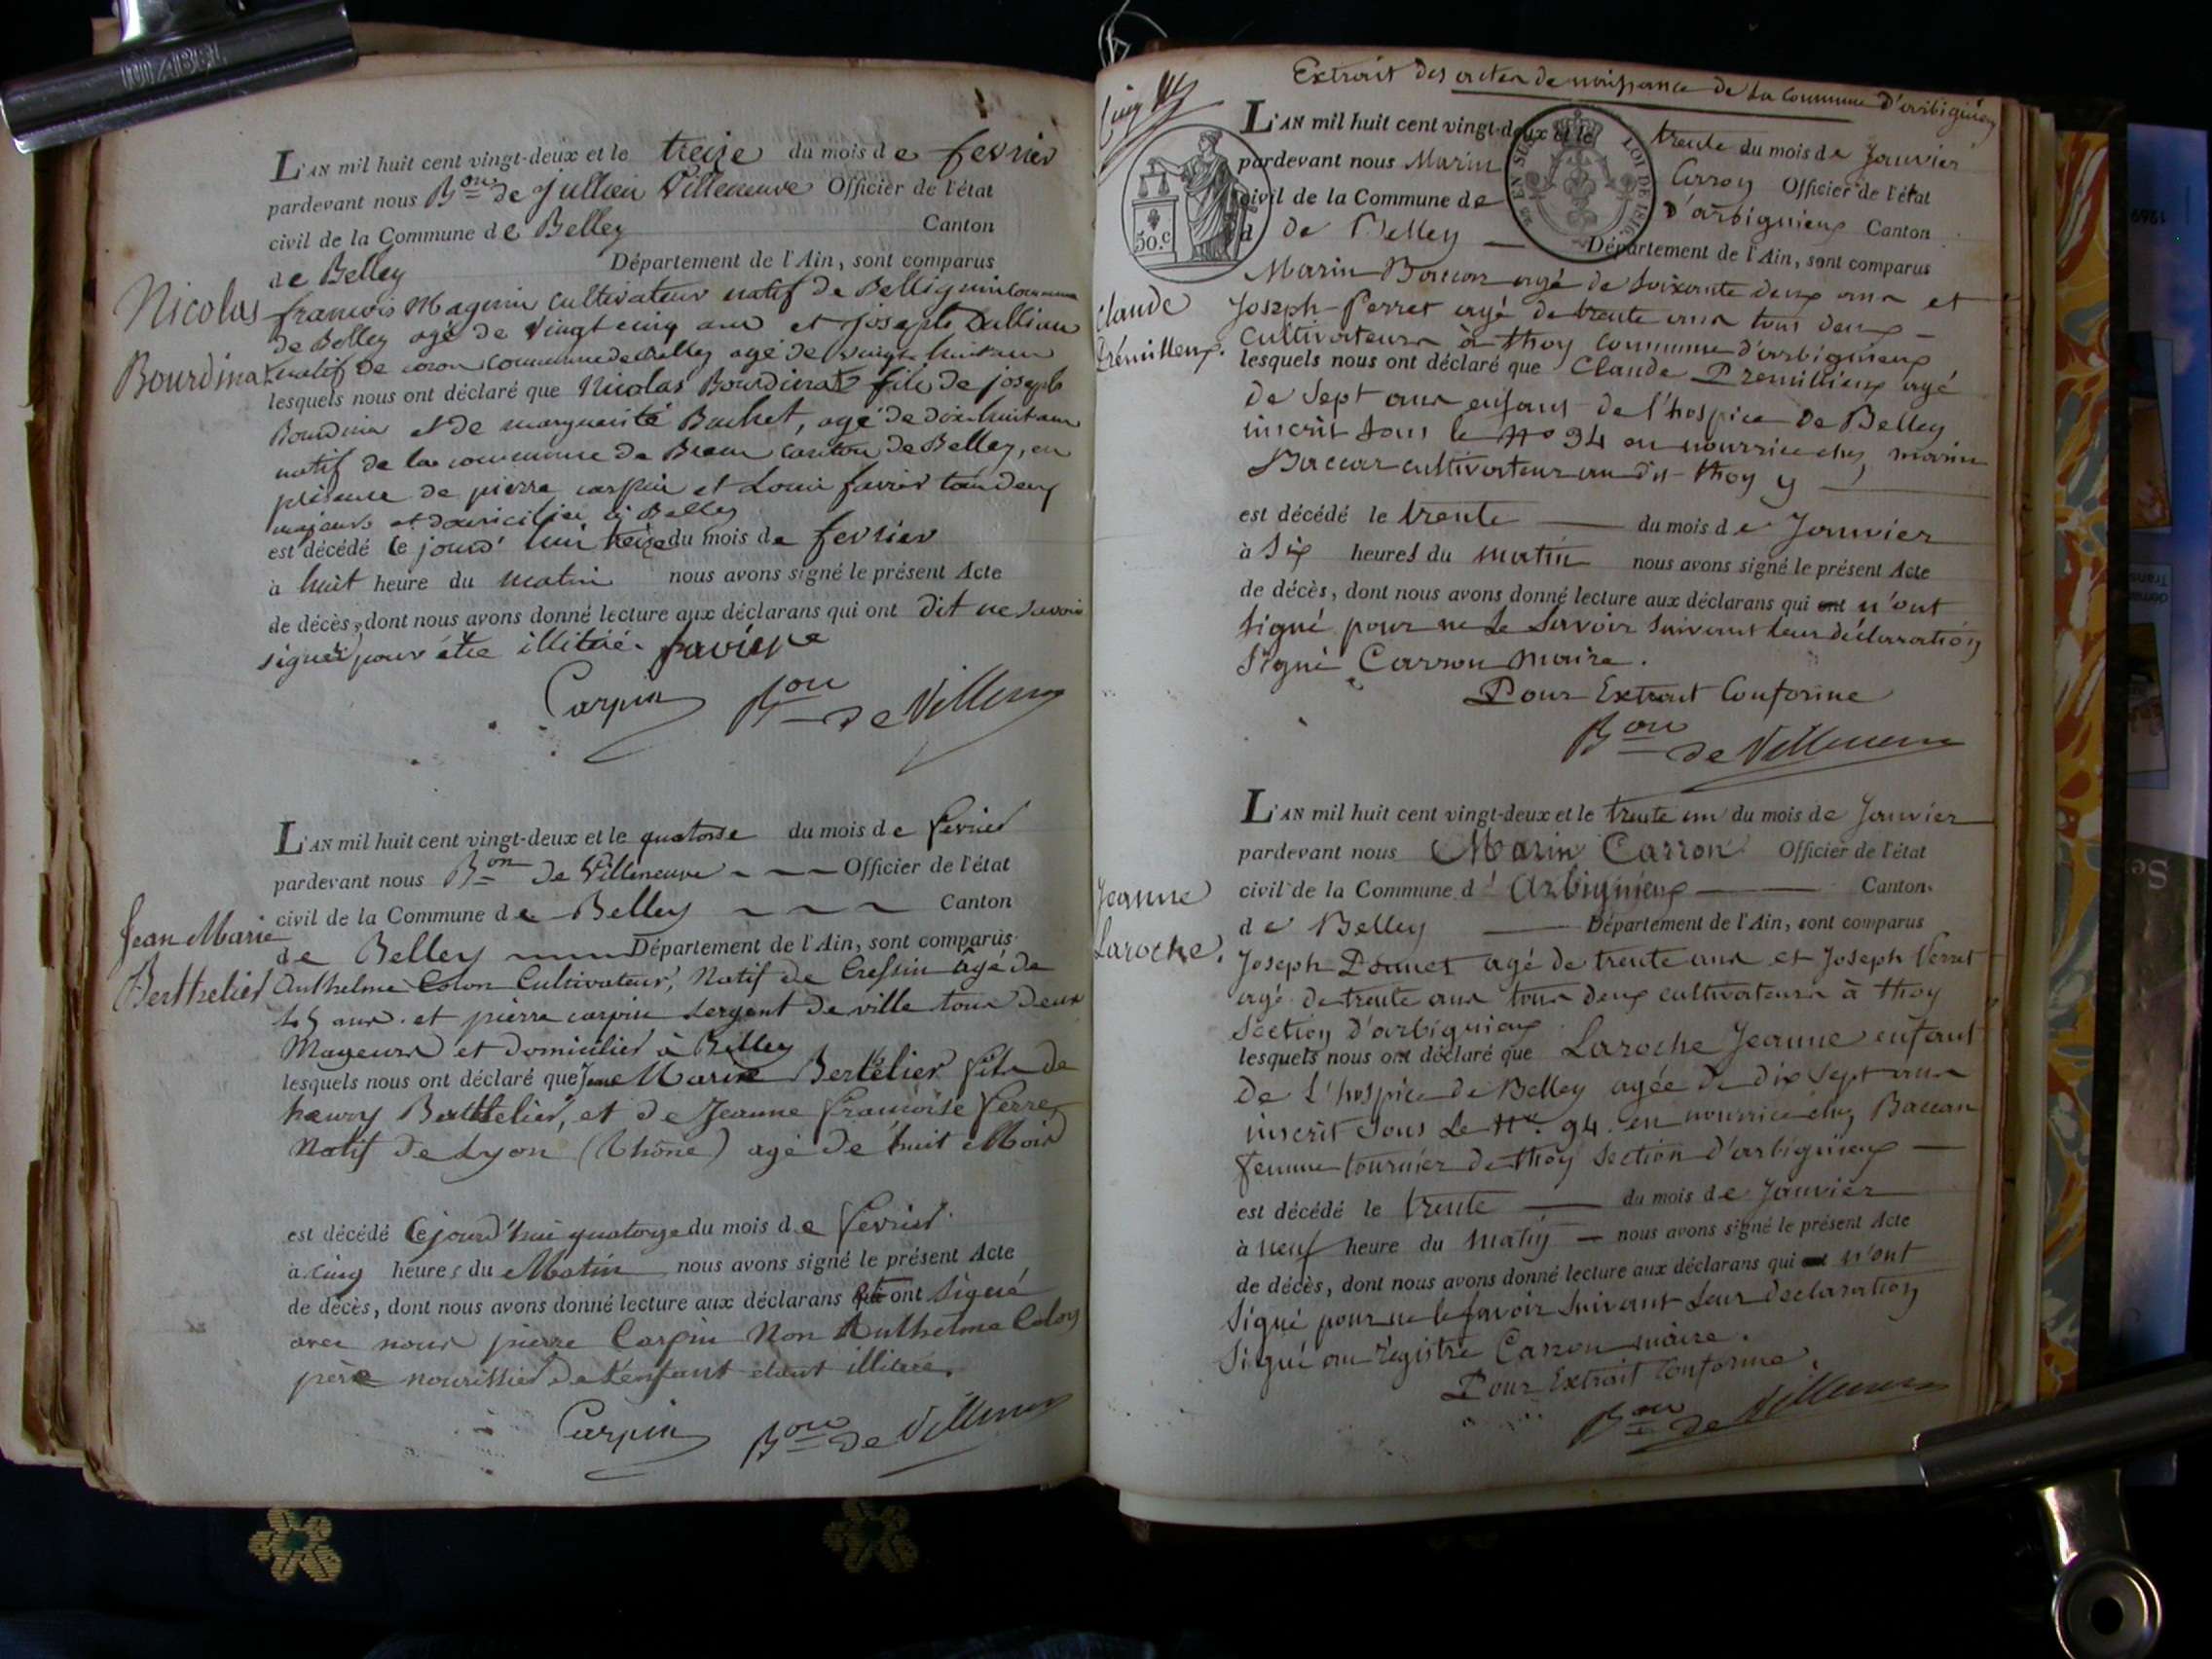 L'AN mil huit cent vingt-deux et le treize du mois de fevrier
pardevant nous Bon de Jullien Villeneuve Officier de l'état
civil de la Commune de Belley Canton
de Belley Département de l'Ain, sont comparus
Nicolas Bourdinat
francois Magnin cultivateur natif de Bellignin Commune
de Belley agé de vingt cinq ans et joseph Dullion
natif de coron Commune de Belley agé de vingt huit ans
lesquels nous ont déclaré que Nicolas Bourdinat fils de joseph
Bourdina et de marguerite Bachet, agé de dix huit ans
natif de la commune de Bran canton de Belley, en
présence de pierre carpin et Louis favier tous deux
majeurs et domiciliés à Belley
est décédé ce jourd'hui treize du mois de fevrier
à huit heure du matin nous avons signé le présent Acte
de décès, dont nous avons donné lecture aux déclarans qui ont dit ne savoir
signer pour être illitéré. favier
Carpin Bon de Villeneuve
L'AN mil huit cent vingt-deux et le quatorse du mois de fevrier
pardevant nous Bon de Villeneuve Officier de l'état
civil de la Commune de Belley Canton
de Belley Département de l'Ain, sont comparus
Jean Marie
Berthelier
Anthelme Colon Cultivateur, Natif de Cressin âgé de
45 ans. et pierre carpin sergent de ville tous deux
Mageurs et domicilier à Belley
lesquels nous ont déclaré que Jean Marie Bertelier fils de
henry Berthelier, et de Jeanne françoise ferre,
Natif de Lyon (Rhône) agé de huit Mois
est décédé cejourd'hui quatorze du mois de fevrier
à cinq heures du Matin nous avons signé le présent Acte
de décès, dont nous avons donné lecture aux déclarans qui ont signé
avec nous pierre Carpin Non Anthelme Colon
père nourissier de l'enfant étant illitéré.
Carpin Bon de Villeneuve
Extrait des actes de naissance de la commune d'arbignieu
L'AN mil huit cent vingt-deux et le trente du mois de Janvier
pardevant nous Marin Carron Officier de l'état
civil de la Commune de d'arbignieux Canton
d de Belley Département de l'Ain, sont comparus
50.c
EN SUS
LOI DE 1816.
Claude
Prémilleux.
Marin Baccon agé de soixante deux ans et
Joseph Perret agé de trente ans tous deux
cultivateurs à thoy commune d'arbignieux
lesquels nous ont déclaré que Claude Premillieux agé
de sept ans enfant de l'hospice de Belley
inscrit sous le No 94 en nourrice chez marin
Baccon cultivateur au dit thoy y
est décédé le trente du mois de Janvier
à six heures du matin nous avons signé le présent Acte
de décès, dont nous avons donné lecture aux déclarans qui ont n'ont
signé pour ne le savoir suivant leur déclaration
signé Carron maire.
Pour Extrait Conforme
Bon de Villeneuve
L'AN mil huit cent vingt-deux et le trente un du mois de Janvier
pardevant nous Marin Carron Officier de l'état
civil de la Commune d' Arbignieux Canton
de Belley Département de l'Ain, sont comparus
Jeanne
Laroche.
Joseph Donnet agé de trente ans et Joseph Perret
agé de trente ans tous deux cultivateurs à thoy
section d'arbignieux
lesquels nous ont déclaré que Laroche Jeanne enfant
de l'hospice de Belley agée de dix sept ans
inscrit sous le No. 94 en nourrice chez Baccon
femme tournier de thoy section d'arbignieux
est décédé le trente du mois de Janvier
à neuf heure du matin nous avons signé le présent Acte
de décès, dont nous avons donné lecture aux déclarans qui ont n'ont
signé pour ne le savoir suivant leur declaration
signé au registre Carron maire.
Pour Extrait Conforme.
Bon de Villeneuve